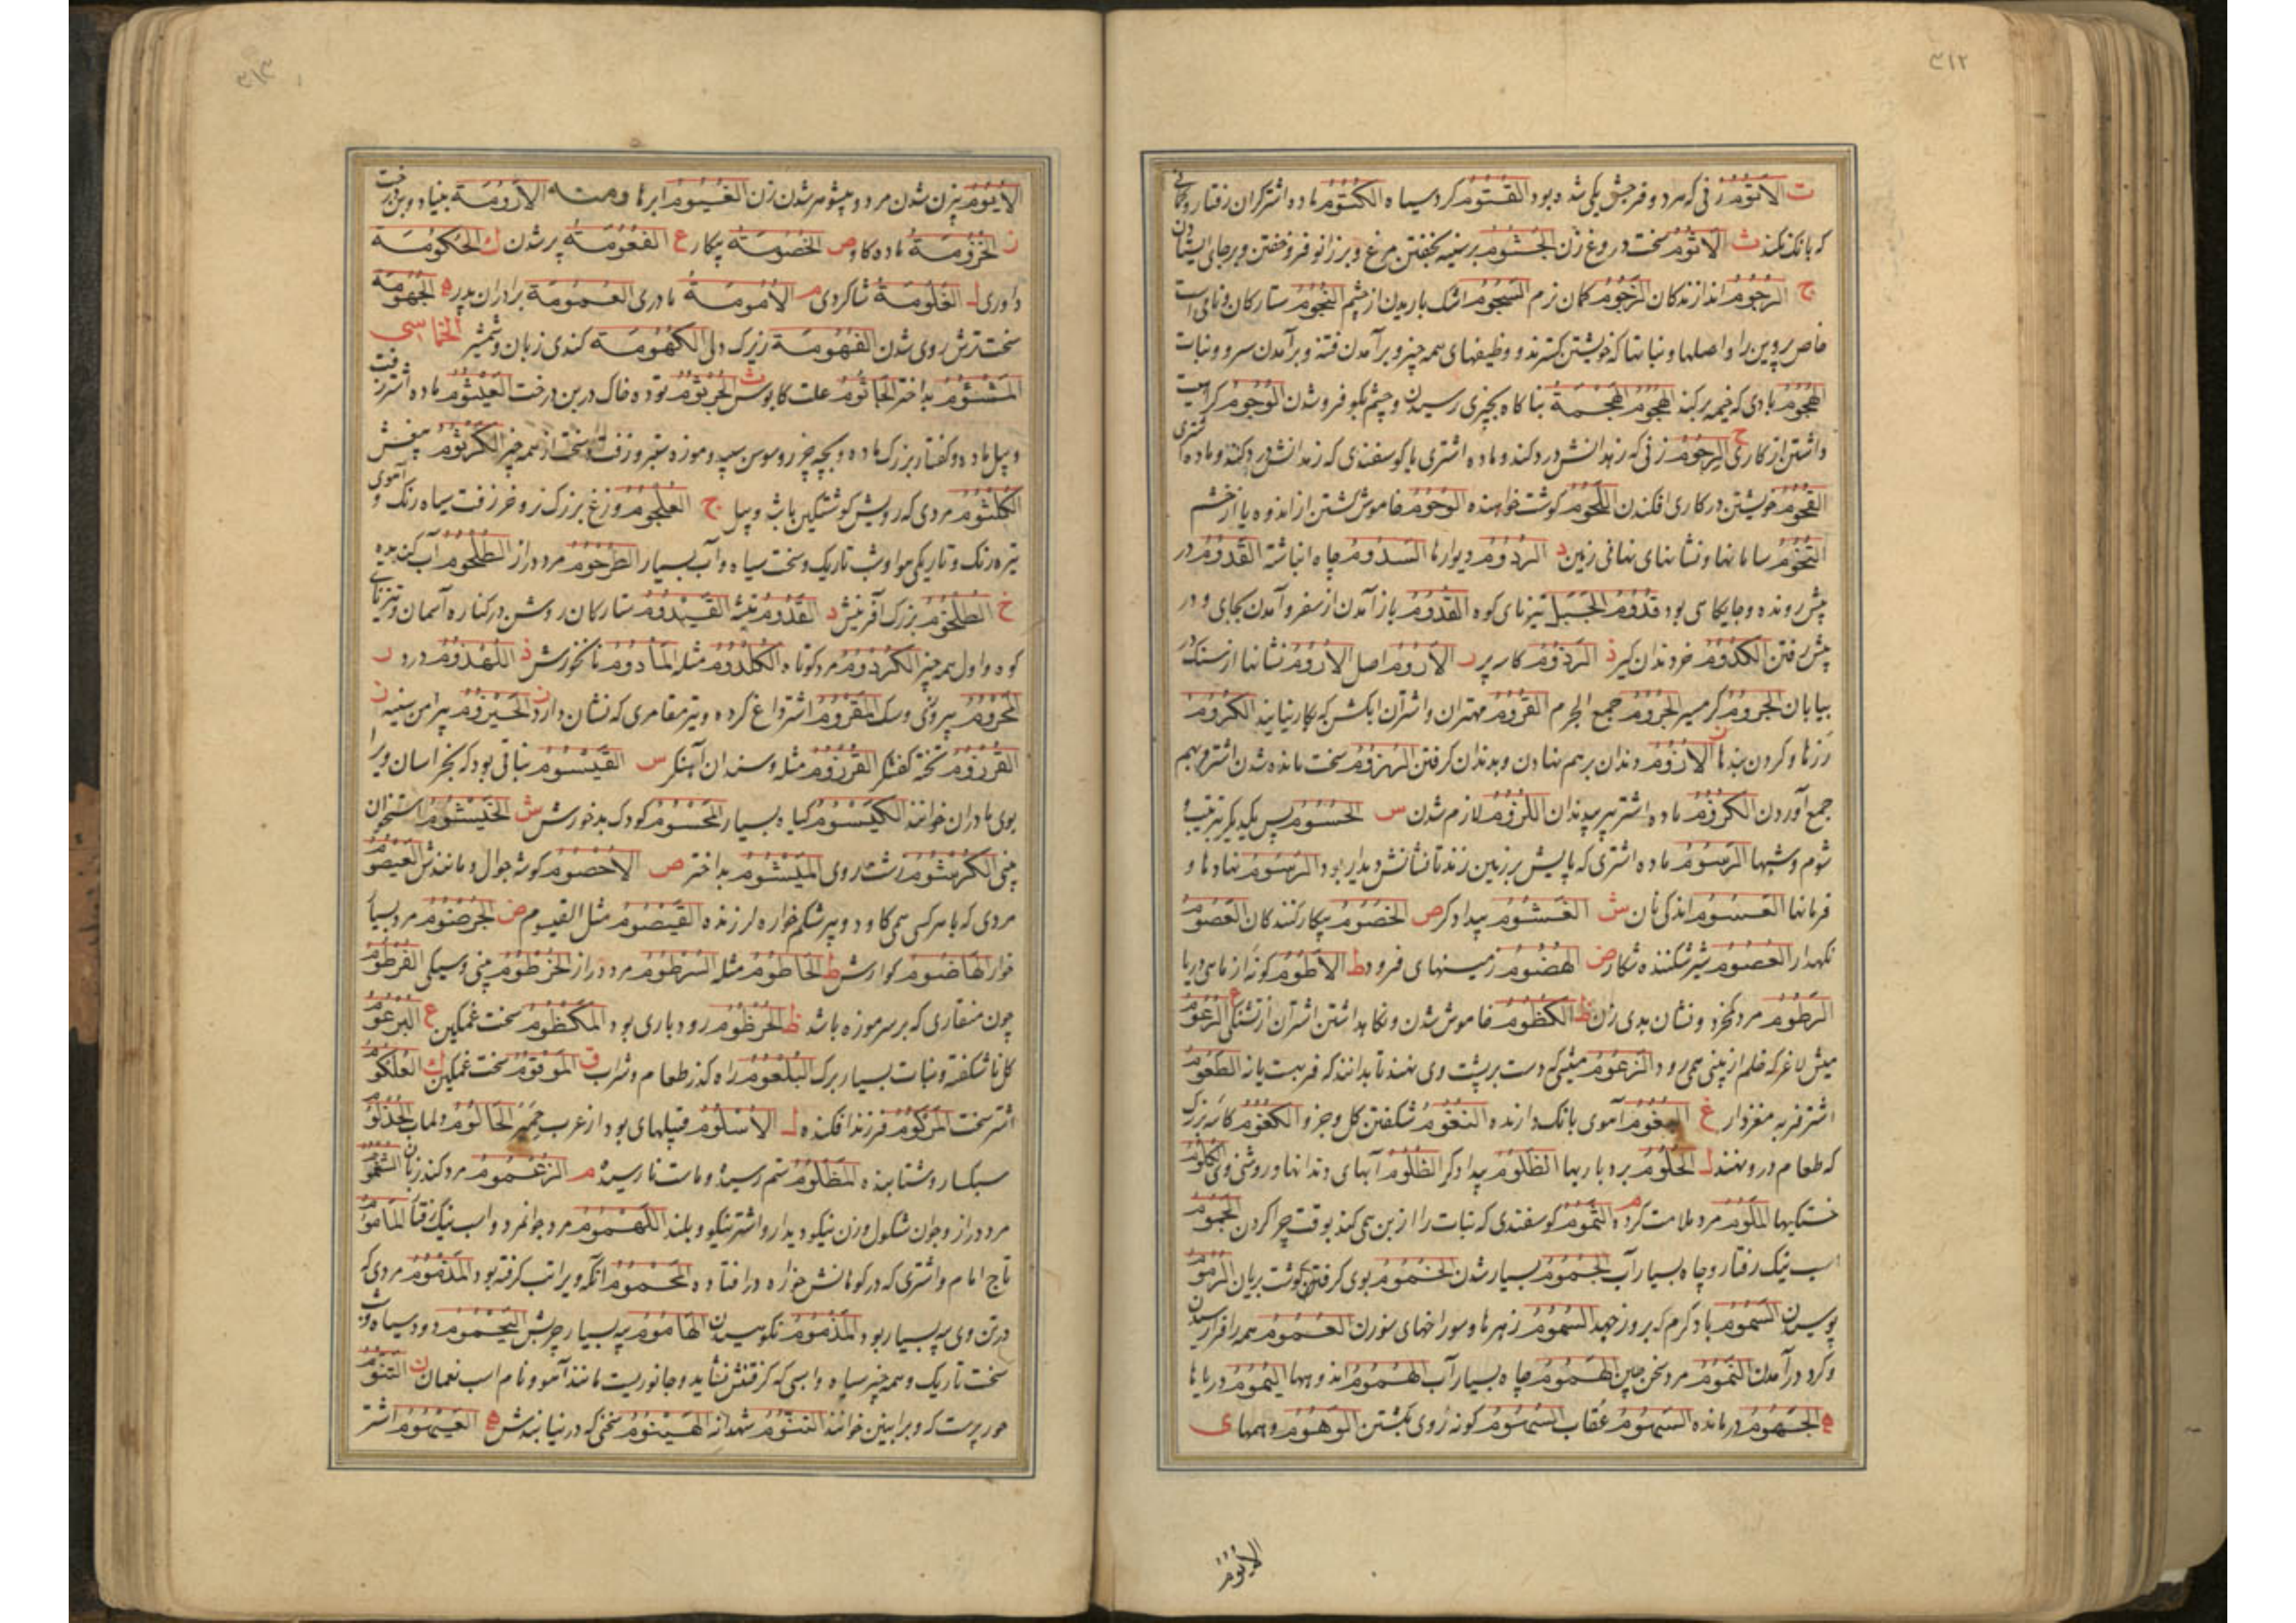 ٣١٢
ت الاَتُومُ زنی که هر دو فرجش یکی شده بود القُتُومُ کرد سیاه الکَتُومُ ماده اشتر کران رفتار و کمانی
که بانک نکند ث الاَثُومُ سخت دروغ زن الجُثُومُ بر سینه بخفتن مرغ و بر زانو فرو خفتن و بر جای ایستادن
ج الرُجُومُ اندازندکان الزَجُومُ کمان نرم السُجُومُ اشک باریدن از چشم النُجُومُ ستارکان و نامی است
خاص پروین را و اصلها و نباتها که خویشتن کسترند و وظیفهای همه چیز و برآمدن فتنه و برآمدن سرو و نبات
الهَجُومُ بادی که خیمه برکند الهُجُومُ الهَجْمَةُ بناکاه بچیزی رسیدن و چشم بکو فرو شدن الوُجُومُ کراهیت
داشتن از کاری ح الرَحُومُ زنی که زهدانش درد کند و ماده اشتری یا کوسفندی که زهدانش درد کند و ماده اشتری
القُحُومُ خویشتن در کاری افکندن اللَحُومُ کوشت خواهنده الوُحُومُ خاموش کشتن از اندوه یا از خشم
التُخُومُ سامانها و نشانهای نهانی زمین د الرُدُومُ دیوارها السَدُومُ چاه انباشته القَدُومُ در
پیش رونده و جایکاهی بود قَدُومُ الجَبَل تیزنای کوه القُدُومُ باز آمدن از سفر و آمدن بجای و در
پیش رفتن الکَدُومُ خر دندان کیر ذ الرَذُومُ کاسه پر ر الاَرُومُ اصل الاُرُومُ نشانها از سنک در
بیابان الجُرُومُ کرمسیر الجُرُومُ جمع الجرم القُرُومُ مهتران و اشتران ابکشن که بکار نیایند الکُرُومُ
رزها و کردن بندها ز الاُزُومُ دندان بر هم نهادن و بدندان کرفتن الرُزُومُ سخت مانده شدن اشتر و بهم
جمع آوردن الکَزُومُ ماده اشتر پیر بی‌دندان اللُزُومُ لازم شدن س الحُسُومُ پس یکدیکر بترتیب
شوم و شبها الرَسُومُ ماده اشتری که پایش بر زمین زند تا نشانش پدیدار بود الرُسُومُ نهادها و
فرمانها العُسُومُ اندکی نان ش الغَشُومُ بیدادکر ص الخُصُومُ پیکار کنندکان العَصُومُ
نکهدار العُصُومُ شیر شکننده شکار ض الهُضُومُ زمینهای فرود ط الاَطُومُ کونه از ماهی دریا
الرَطُومُ مرد و نشان بدی زن ظ الکُظُومُ خاموش شدن و نکاهداشتن اشتران از تشنکی ع الرَعُومُ
میش لاغر که خلم از بینی همی رود الزَعُومُ میشی که دست بر پشت وی نهند تا بدانند که فربهست یا نه الطَعُومُ
اشتر فربه مغزدار غ البَغُومُ آهوی بانک دارنده الفُغُومُ شکفتن کل و جز و الکُعُومُ کاسه بزرک
که طعام درو نهند ل الحُلُومُ بردباریها الظَلُومُ بیدادکر الظُلُومُ آبهای دندانها و روشنی وی الکُلُومُ
خستکیها المَلُومُ مرد ملامت کرده م الثَمُومُ کوسفندی که نبات را از بن همی کند بوقت چرا کردن الجَمُومُ
اسب نیک رفتار و چاه بسیار آب الجُمُومُ بسیار شدن الخُمُومُ بوی کرفتن کوشت بریان الرُمُومُ
پوسیدن السَمُومُ باد کرم که بروز جهد السُمُومُ زهرها و سوراخهای سوزن العُمُومُ همه را فرا رسیدن
و کرد درآمدن النَمُومُ مرد سخن چین الهَمُومُ چاه بسیار آب الهُمُومُ اندوهها الیُمُومُ دریاها
ه الجَهُومُ درمانده السَهُومُ عُقاب السُهُومُ کونه روی بکشتن الوُهُومُ وهمها ی
الاُیُومُ
٣١٣
الاُیُومُ بی زن شدن مرد و بی شوهر شدن زن الغُیُومُ ابرها ومنه الاَرُومَة بنیاد و بن درخت
ز الخَزُومَةُ ماده کاو ص الخُصُومَةُ پیکار ع الفُعُومَةُ پر شدن ك الحُکُومَة
داوری ل الغُلُومَةُ شاکردی م الاُمُومَةُ مادری العُمُومَة برادران پدر ه الجُهُومَة
سخت ترش روی شدن الفُهُومَة زیرک دلی الکُهُومَة کندی زبان و شمشیر الخماسی
المَشْئُومُ بداختر ث الجَاثُومُ علت کابوس الجُرْثُومُ توده خاک در بن درخت العَیْثُومُ ماده اشتر زفت
و پیل ماده و کفتار بزرک ماده و بچه و موزه ستبر و زفت و سخت از همه چیز الکُرْثُومُ
الکُلْثُومُ مردی که رویش کوشتکین باشد و پیل ج العُلْجُومُ وزغ بزرک نر و خر زفت سیاه رنک و آهوی
تیره رنک و تاریکی هوا و شب تاریک و سخت سیاه و آب بسیار الطُرْحُومُ مرد دراز الطُلْحُومُ آب کندیده
خ الطُلْخُومُ بزرک آفرینش د القَدُّومُ تیشه القَیْدُومُ ستارکان روشن در کناره آسمان و تیزنای
کوه و اول همه چیز الکُرْدُومُ مرد کوتاه الکُلْدُومُ مثله المَأْدُومُ نانخورش ذ اللُهْذُومُ درو ر
المَحْرُومُ بی روزی و سک المَقْرُومُ اشتر داغ کرده و تیر مقامری که نشان دارد ز الحَیْزُومُ پیرامن سینه
القُرْزُومُ تخته کفشکر الفُرْزُومُ مثله و سندان آهنکر س القَیْسُومُ نباتی بود که بخراسان ویرا
بوی مادران خوانند الکَیْسُومُ کیاه بسیار المَحْسُومُ کودک بد خورش ش الخَیْشُومُ استخوان
بینی الکُرْشُومُ زشت روی المَیْشُومُ بداختر ص الاُخْصُومُ کوشه جوال و مانندش العَیْصُومُ
مردی که با هر کسی همی کاود و پیر شکم خواره لرزنده القَیْصُومُ مثل القیسوم ض الجُرْضُومُ مرد بسیار
خوار الهَاضُومُ کوارش ط الحَاطُومُ مثله السُرْطُومُ مرد دراز الخُرْطُومُ بینی و سیکی الفُرْطُومُ
چون منقاری که بر سر موزه باشد ظ رودباری بود المَکْظُومُ سخت غمکین ع البُرْعُومُ
کل ناشکفته و نبات بسیار برک البُلْعُومُ راه کذر طعام و شراب ق المَوْقُومُ سخت غمکین ك العُلْکُومُ
اشتر سخت المَزْکُومُ فرزند افکنده ل الاُسْلُومُ قبیلهای بود از عرب حِمْیَر الحَالُومُ ولماب
سبکسار و شتابنده المَظْلُومُ ستم رسیده و ماست نارسیده م الزُعْمُومُ مرد کند زبان
مرد دراز و جوان شکول و زن نیکو دیدار و اشتر نیکو و بلند اللُهْمُومُ مرد جوانمرد و اسب نیک رفتار المَأمُومُ
تابع امام و اشتری که در کوهانش خوره درافتاده المَحْمُومُ آنکه ویرا تب کرفته بود المَدْمُومُ مردی که
در تن وی پیه بسیار بود المَذْمُومُ نکوهیده الهَامُومُ پیه بسیار چربش الیَحْمُومُ دود سیاه و شب
سخت تاریک و همه چیز سیاه و اسبی که کرفتنش نشاید و جانوریست مانند آهو و نام اسب نعمان ن التَنُّومُ
هور پرست که و برا بینین خوانند التَنُّومُ شهدانه الهَیْنُومُ سخنی که در نیابندش ه العَیْهُومُ اشتر